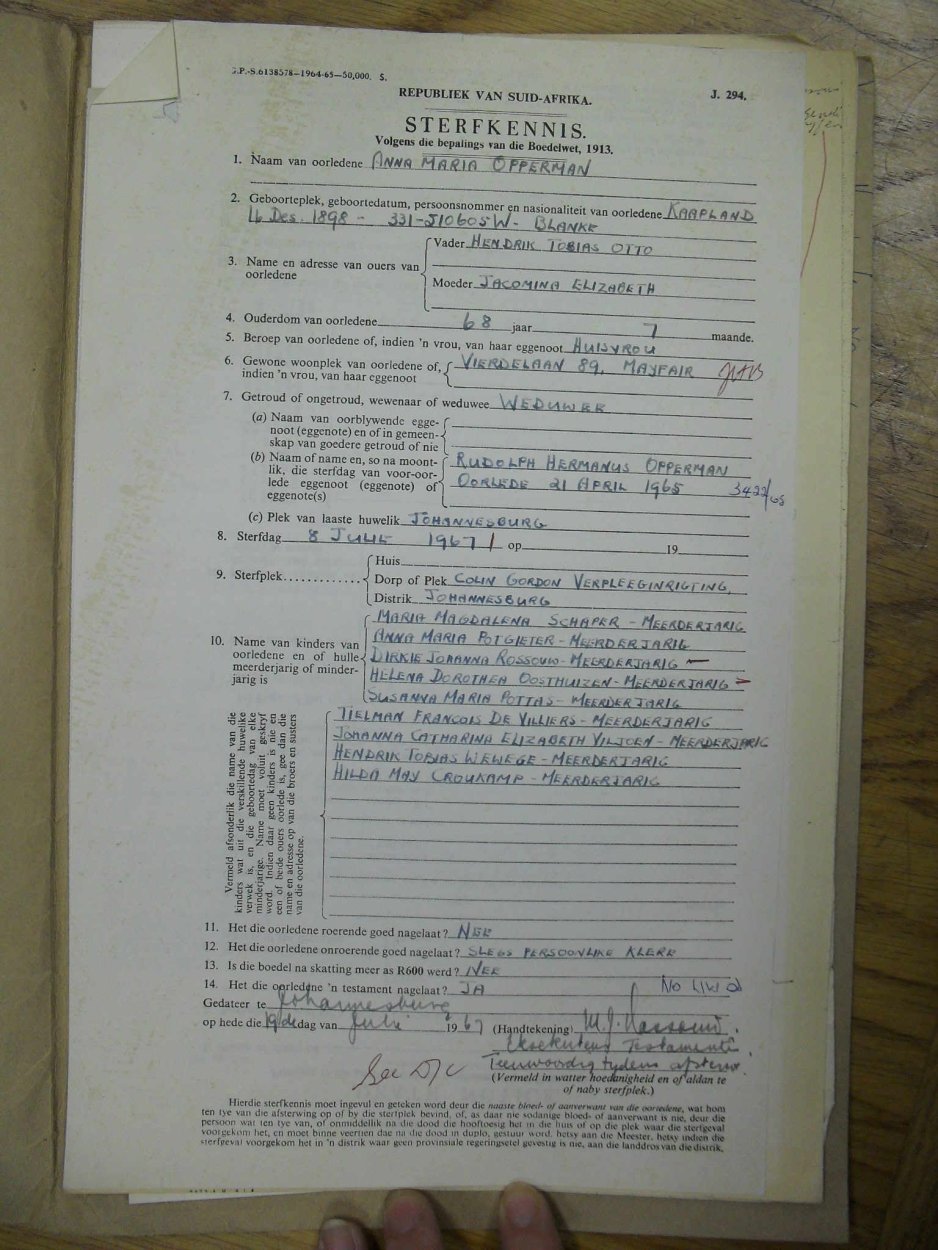 G.P.-S.6138578—1964-65—50,000. S.
REPUBLIEK VAN SUID-AFRIKA.
J. 294.
STERFKENNIS.
Volgens die bepalings van die Boedelwet, 1913.
1. Naam van oorledene ANNA MARIA OPPERMAN
2. Geboorteplek, geboortedatum, persoonsnommer en nasionaliteit van oorledene KAAPLAND
Des. 1898 - 331-J10605W - BLANKE
Vader HENDRIK TOBIAS OTTO
3. Name en adresse van ouers van oorledene
Moeder JACOMINA ELIZABETH
4. Ouderdom van oorledene 68 jaar 7 maande.
5. Beroep van oorledene of, indien 'n vrou, van haar eggenoot HUISVROU
6. Gewone woonplek van oorledene of, indien 'n vrou, van haar eggenoot
VIERDELAAN 89, MAYFAIR JHB
7. Getroud of ongetroud, wewenaar of weduwee WEDUWEE
(a) Naam van oorblywende eggenoot (eggenote) en of in gemeenskap van goedere getroud of nie
(b) Naam of name en, so na moontlik, die sterfdag van voor-oorlede eggenoot (eggenote) of eggenote(s)
RUDOLPH HERMANUS OPPERMAN
OORLEDE 21 APRIL 1965 3422/65
(c) Plek van laaste huwelik JOHANNESBURG
8. Sterfdag 8 JULIE 1967 op 19
Huis
9. Sterfplek............ Dorp of Plek COLIN GORDON VERPLEEGINRIGTING,
Distrik JOHANNESBURG
10. Name van kinders van oorledene en of hulle meerderjarig of minderjarig is
MARIA MAGDALENA SCHAPER - MEERDERJARIG
ANNA MARIA POTGIETER - MEERDERJARIG
DIRKIE JOHANNA ROSSOUW - MEERDERJARIG
HELENA DOROTHEA OOSTHUIZEN - MEERDERJARIG
SUSANNA MARIA POTTAS - MEERDERJARIG
TIELMAN FRANCOIS DE VILLIERS - MEERDERJARIG
JOHANNA CATHARINA ELIZABETH VILJOEN - MEERDERJARIG
HENDRIK TOBIAS WEWEGE - MEERDERJARIG
HILDA MAY CROUKAMP - MEERDERJARIG
Vermeld afsonderlik die name van die
kinders wat uit die verskillende huwelike
verwek is, en die geboortedag van elke
minderjarige. Name moet voluit geskryf
word. Indien daar geen kinders is nie en
een of beide ouers oorlede is, gee dan die
name en adresse op van die broers en susters
van die oorledene.
11. Het die oorledene roerende goed nagelaat? NEE
12. Het die oorledene onroerende goed nagelaat? SLEGS PERSOONLIKE KLERE
13. Is die boedel na skatting meer as R600 werd? NEE
14. Het die oorledene 'n testament nagelaat? JA
Gedateer te Johannesburg
op hede die 19de dag van Julie 1967 (Handtekening)
Eksekuteur Testamentêr
Teenwoordig tydens afsterwe.
(Vermeld in watter hoedanigheid en of aldan te of naby sterfplek.)
See D/C
Hierdie sterfkennis moet ingevul en geteken word deur die naaste bloed- of aanverwant van die oorledene, wat hom
ten tye van die afsterwing op of by die sterfplek bevind, of, as daar nie sodanige bloed- of aanverwant is nie, deur die
persoon wat ten tye van, of onmiddellik na die dood die hooftoesig het in die huis of op die plek waar die sterfgeval
voorgekom het, en moet binne veertien dae na die dood in duplo, gestuur word, hetsy aan die Meester, hetsy indien die
sterfgeval voorgekom het in 'n distrik waar geen provinsiale regeringsetel gevestig is nie, aan die landdros van die distrik,